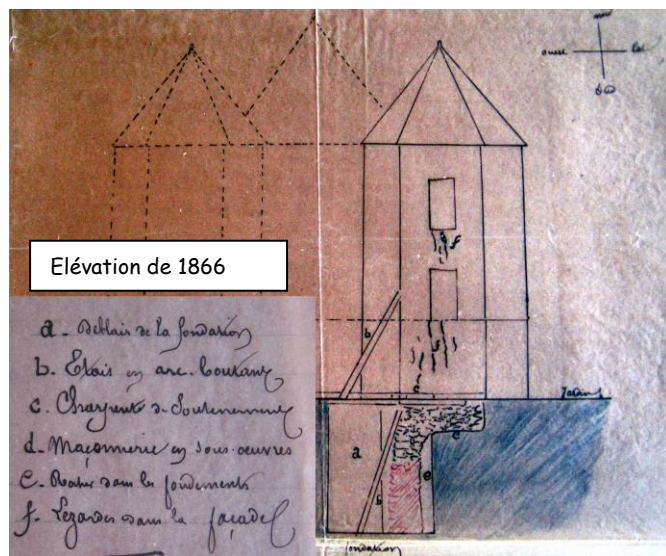 ouest est
f
Elévation de 1866
b
f
c
a - Déblais de la fondation
b. Etais en arc-boutant
c. Charpente de Soutènement
d. Maçonnerie en sous-oeuvres
e. Rocher dans les fondements
f. Lezardes dans la façade
a
e
e
b
fondation